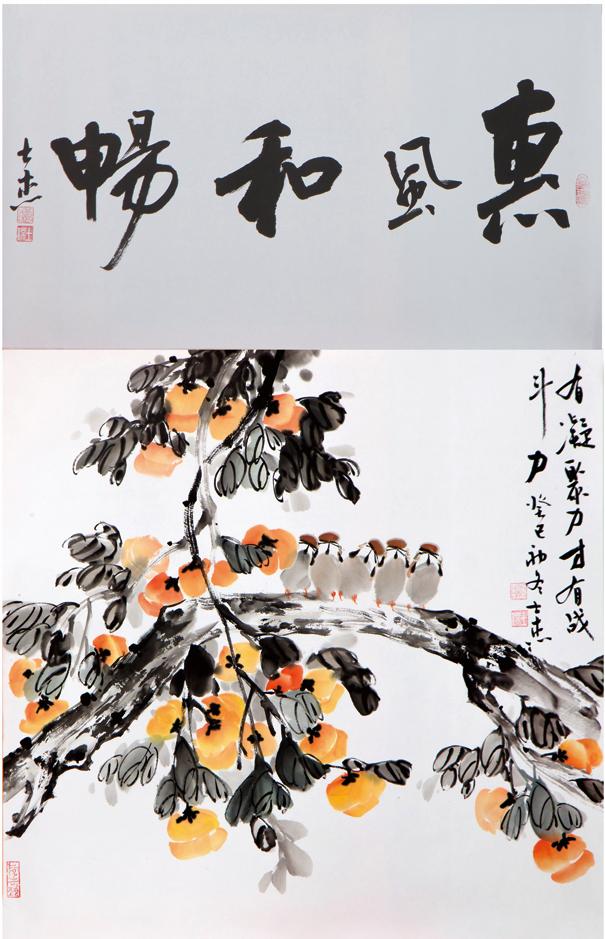 惠風和暢
士杰
有凝聚力才有战
斗力 癸巳初冬 士杰